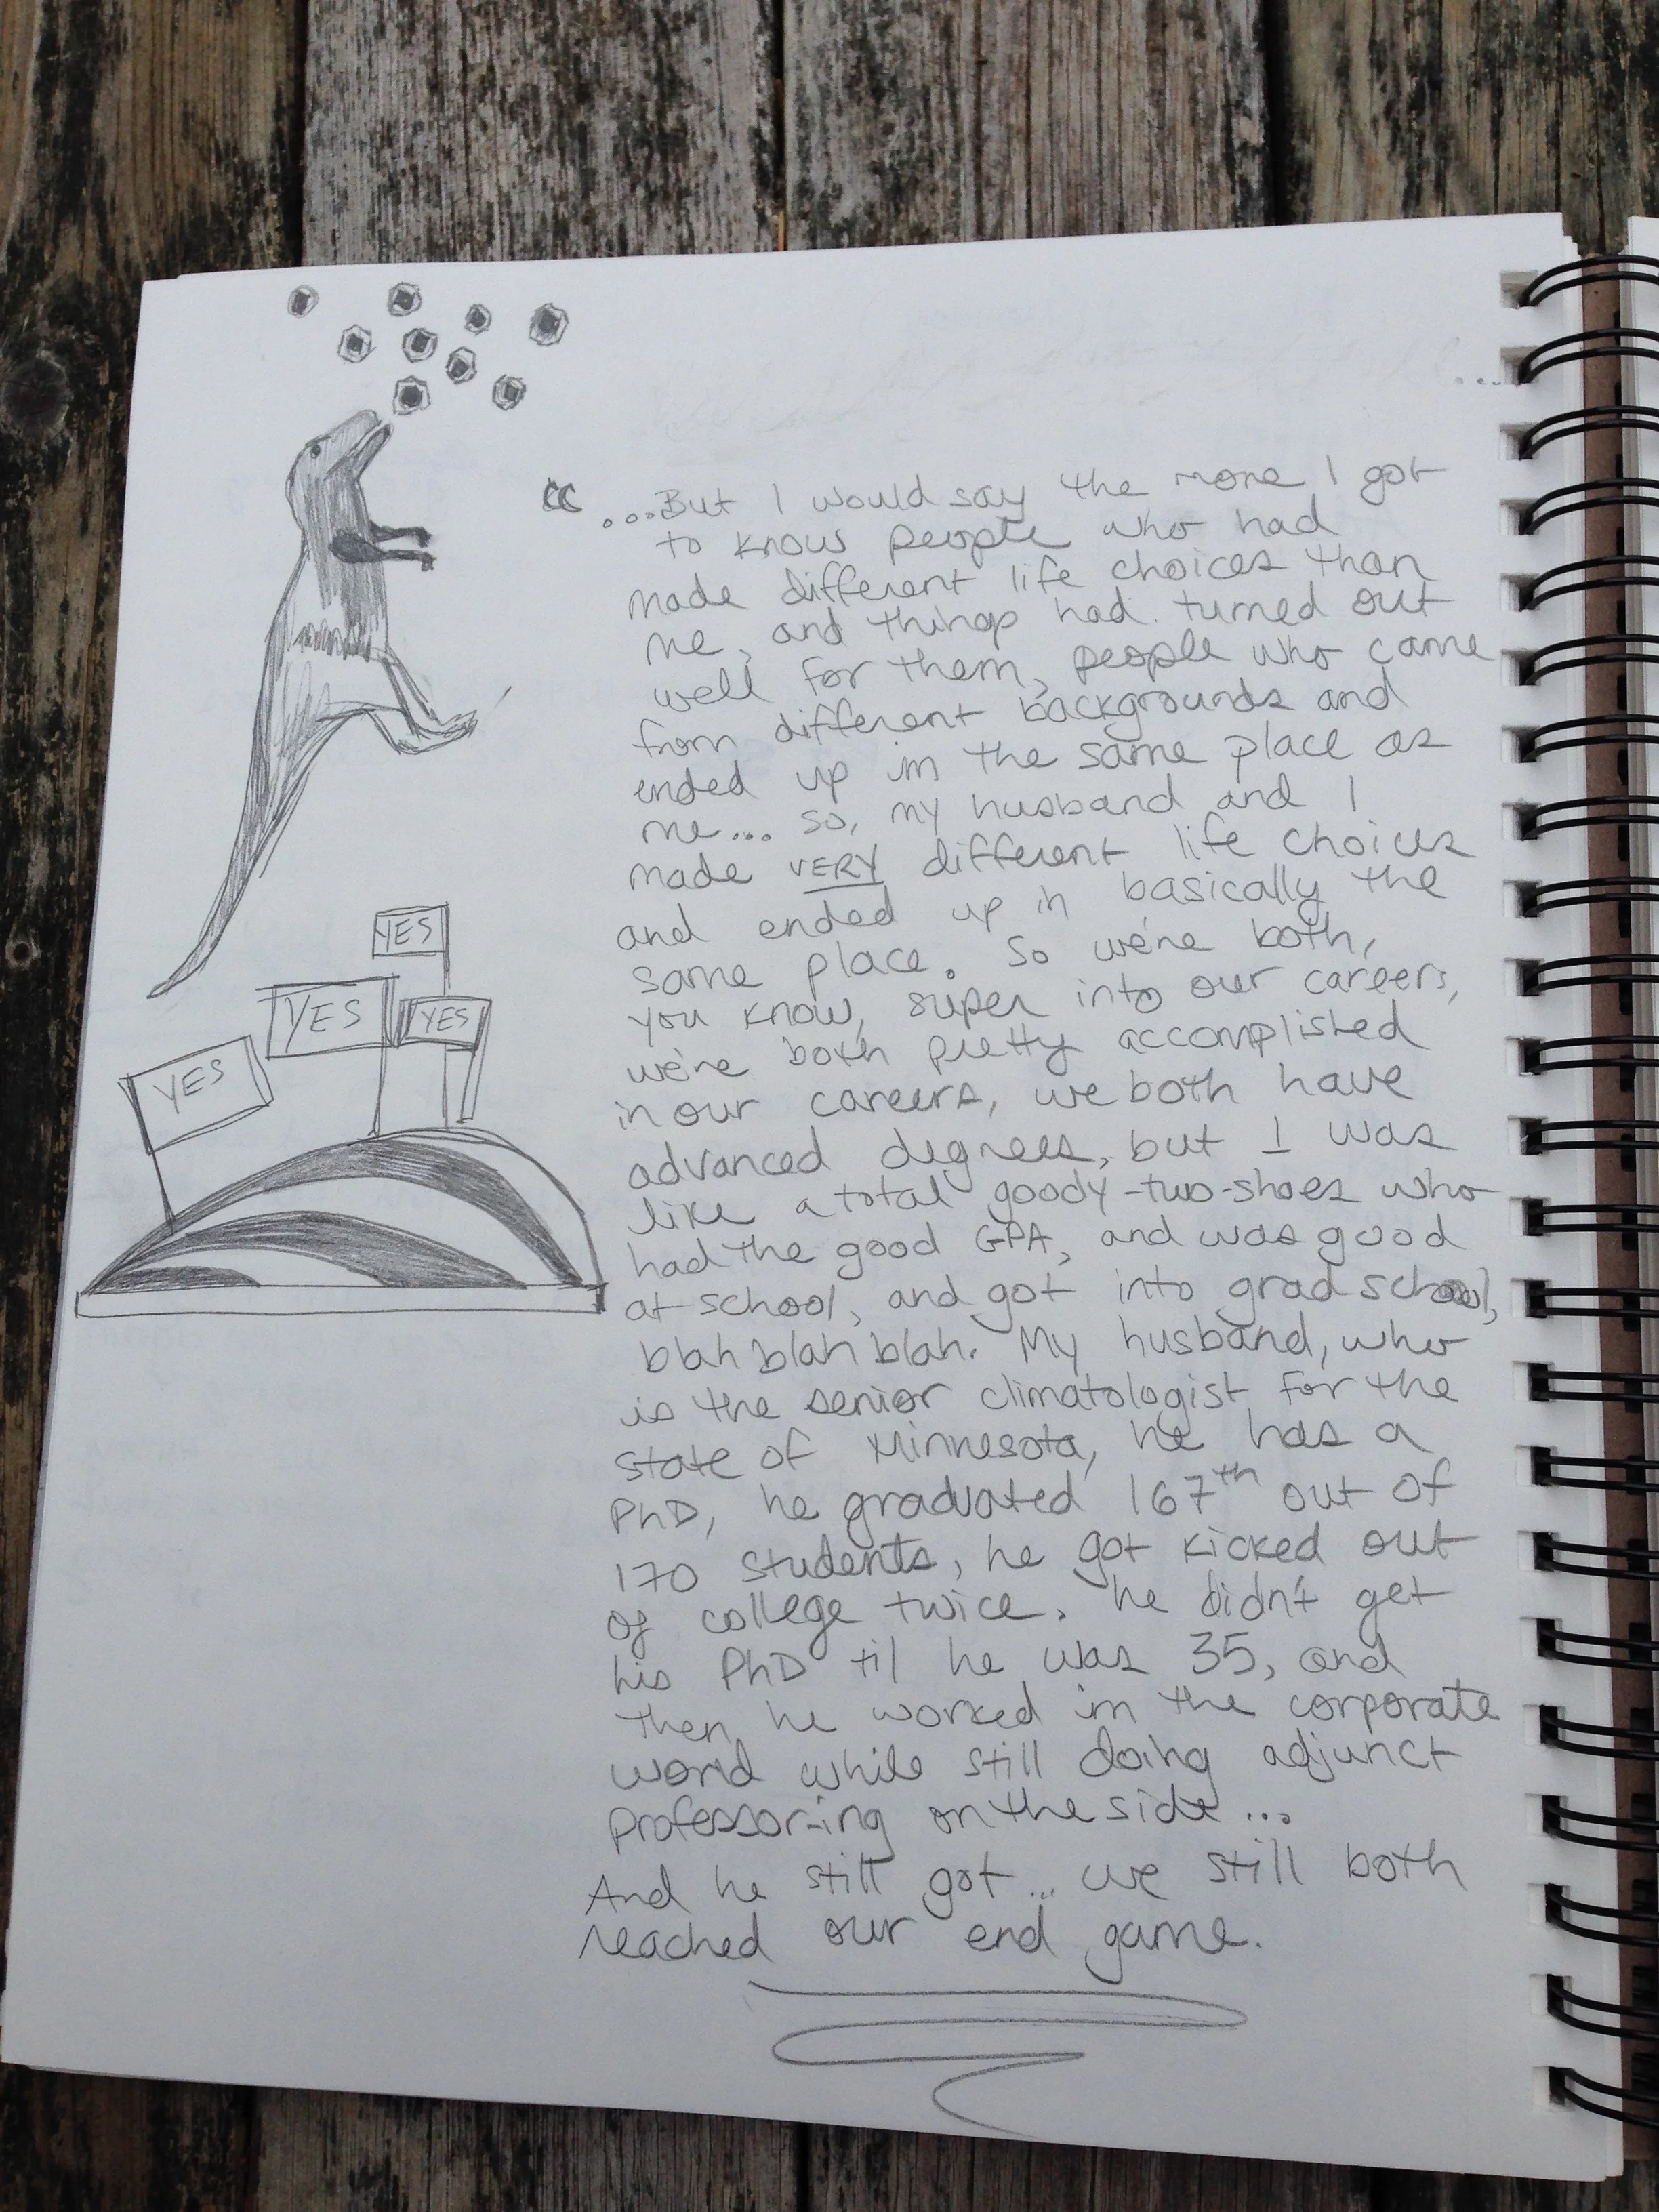 YES
YES
YES
YES
“ ...But I would say the more I got
to know people who had
made different life choices than
me, and things had turned out
well for them, people who came
from different backgrounds and
ended up in the same place as
me... so, my husband and I
made VERY different life choices
and ended up in basically the
same place. So we're both,
you know, super into our careers,
we're both pretty accomplished
in our careers, we both have
advanced degrees, but I was
like a total goody-two-shoes who
had the good GPA, and was good
at school, and got into grad school,
blah blah blah. My husband, who
is the senior climatologist for the
state of Minnesota, he has a
PhD, he graduated 167th out of
170 students, he got kicked out
of college twice. he didn't get
his PhD til he was 35, and
then he worked in the corporate
world while still doing adjunct
professor-ing on the side...
And he still got... we still both
reached our end game.